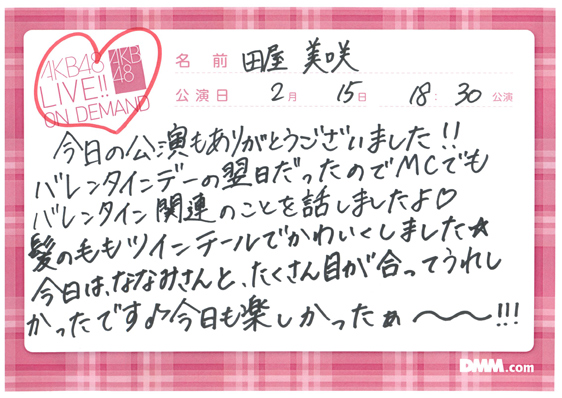 AKB48
LIVE!!
ON DEMAND
AKB
48
名前 田屋 美咲
公演日 2月 15日 18:30 公演
今日の公演もありがとうございました!!
バレンタインデーの翌日だったのでMCでも
バレンタイン関連のことを話しましたよ♡
髪の毛もツインテールでかわいくしました☆
今日は、ななみさんと、たくさん目が合ってうれし
かったです♪今日も楽しかったぁ〜〜!!!
DMM.com